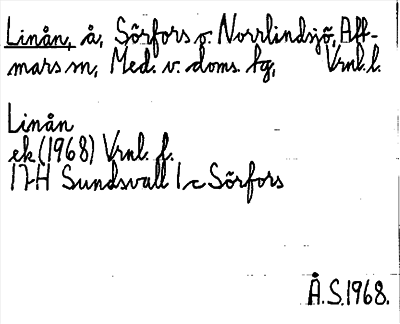 Linån, å, Sörfors o. Norrlindsjö, Att-
mars sn, Med. v. doms. tg, Vrnl. l.
Linån
ek (1968) Vrnl. f.
17H Sundsvall 1 c Sörfors
Å.S. 1968.